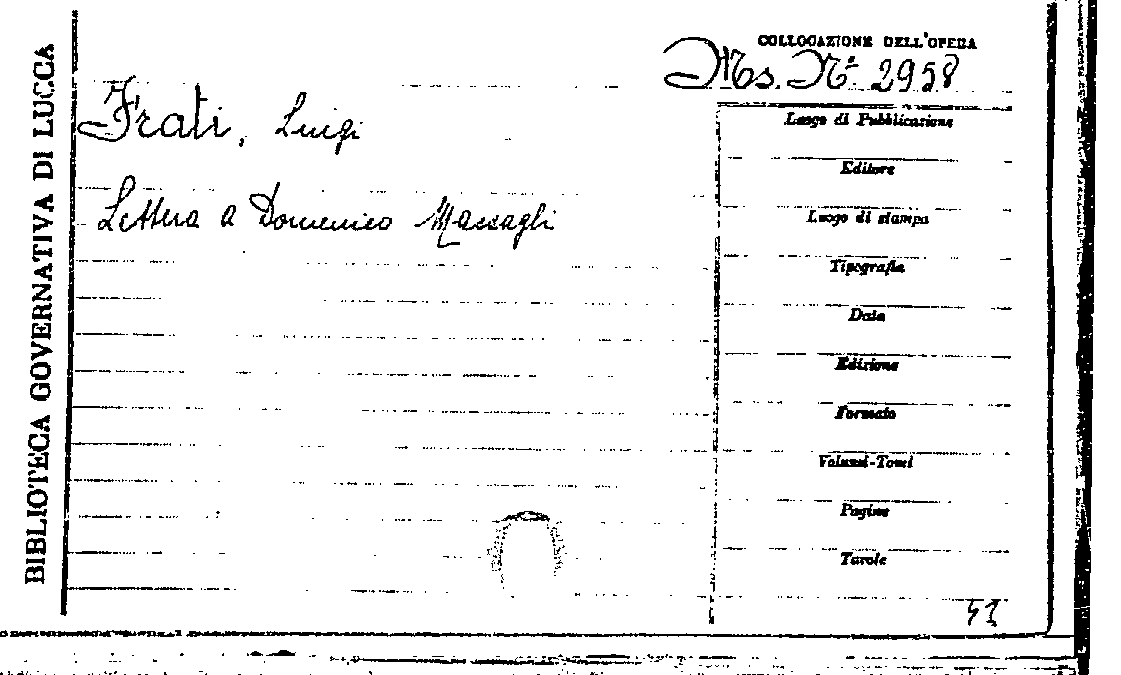 BIBLIOTECA GOVERNATIVA DI LUCCA
COLLOCAZIONE DELL'OPERA
Ms. Nº 2958
Frati, Luigi
Lettera a Domenico Massagli
Luogo di Pubblicazione
Editore
Luogo di stampa
Tipografia
Data
Edizione
Formato
Volumi-Tomi
Pagine
Tavole